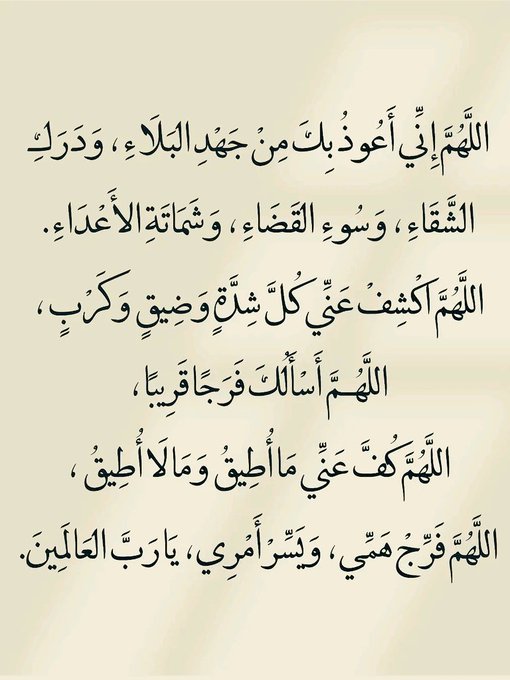 اللَّهُمَّ إِنِّي أَعُوذُ بِكَ مِنْ جَهْدِ البَلَاءِ، وَدَرَكِ
الشَّقَاءِ، وَسُوءِ القَضَاءِ، وَشَمَاتَةِ الأَعْدَاءِ.
اللَّهُمَّ اكْشِفْ عَنِّي كُلَّ شِدَّةٍ وَضِيقٍ وَكَرْبٍ،
اللَّهُمَّ أَسْأَلُكَ فَرَجًا قَرِيبًا،
اللَّهُمَّ كُفَّ عَنِّي مَا أُطِيقُ وَمَا لَا أُطِيقُ،
اللَّهُمَّ فَرِّجْ هَمِّي، وَيَسِّرْ أَمْرِي، يَا رَبَّ العَالَمِينَ.